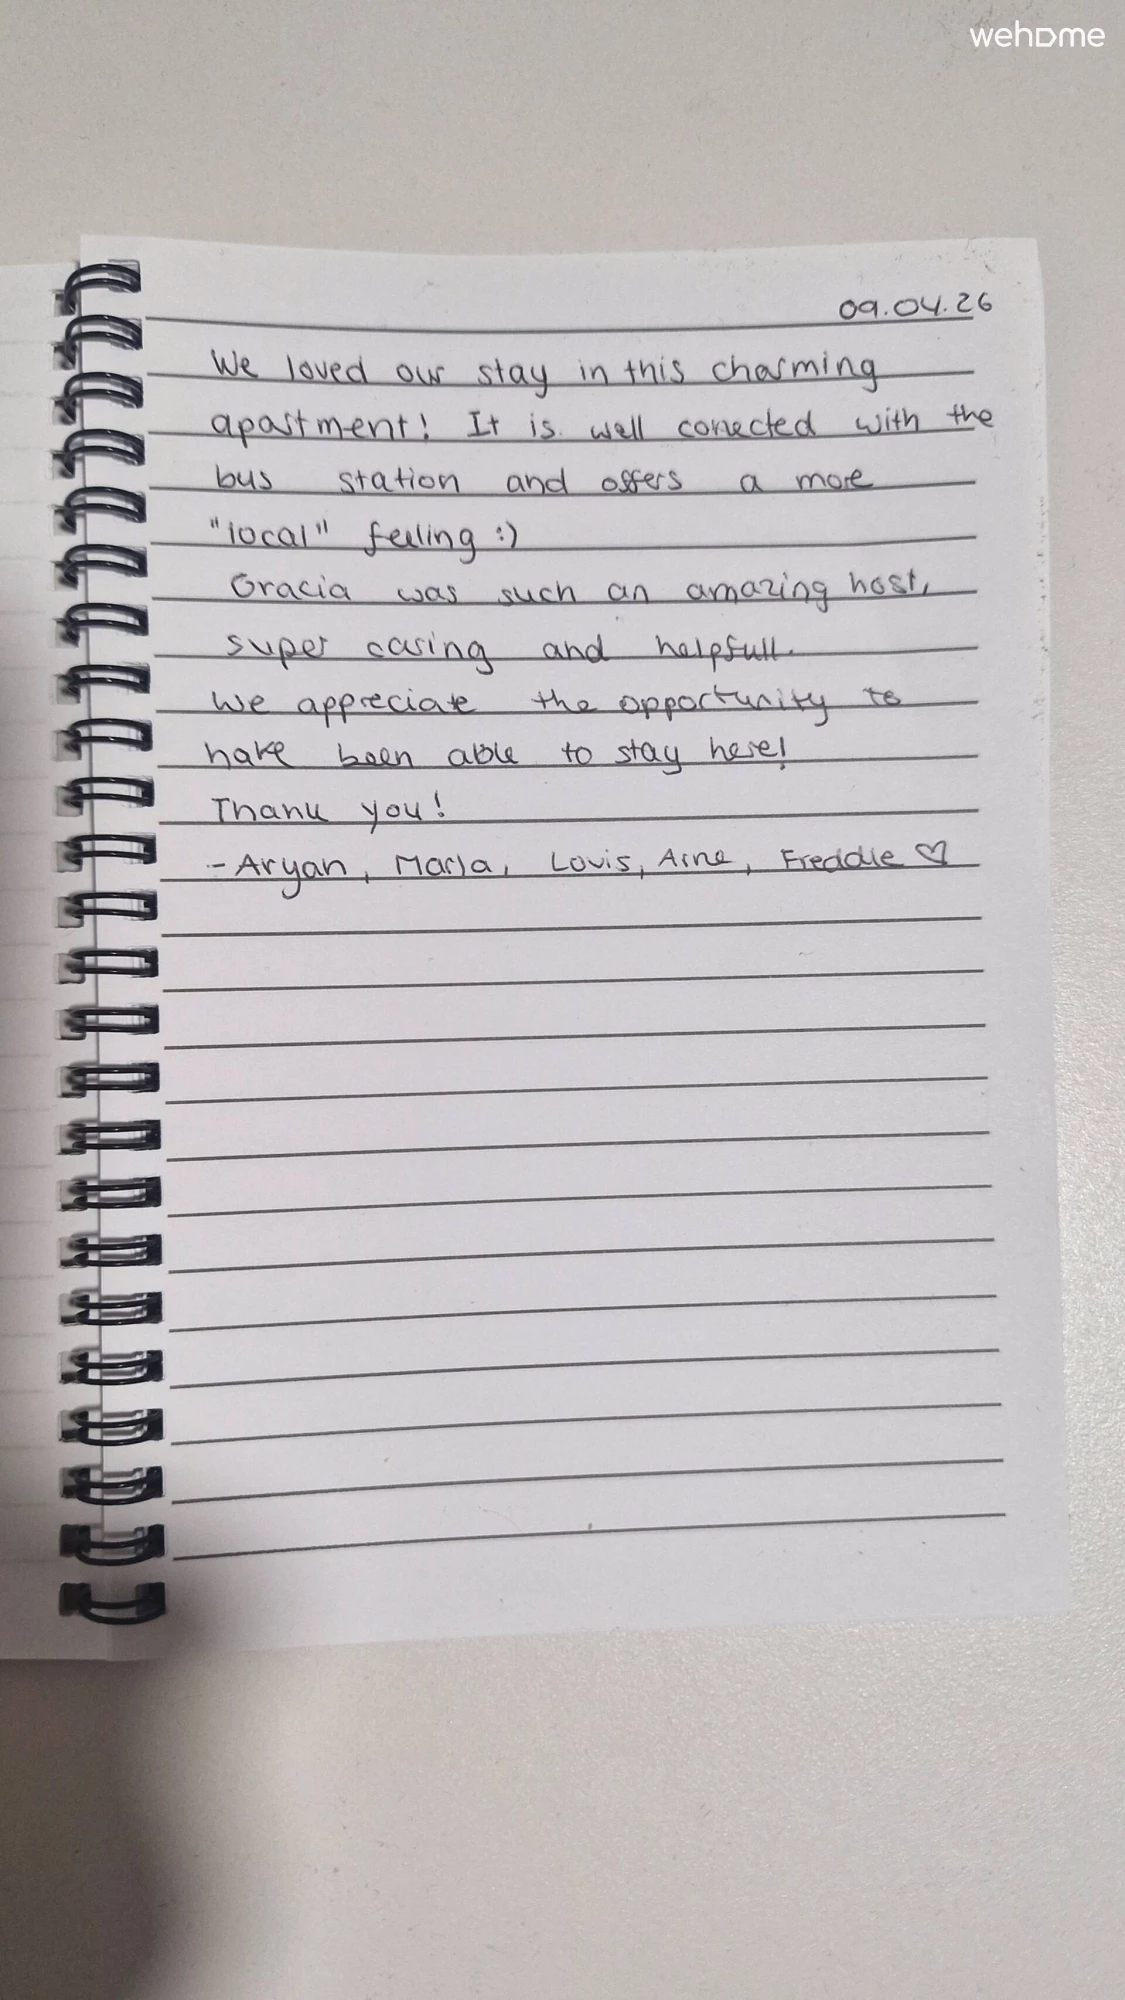 wehome
09.04.26
We loved our stay in this charming
apartment! It is well conected with the
bus station and offers a more
"local" feeling :)
Gracia was such an amazing host,
super caring and helpfull.
We appreciate the opportunity to
have been able to stay here!
Thank you!
- Aryan, Marla, Louis, Arne, Freddie ♡